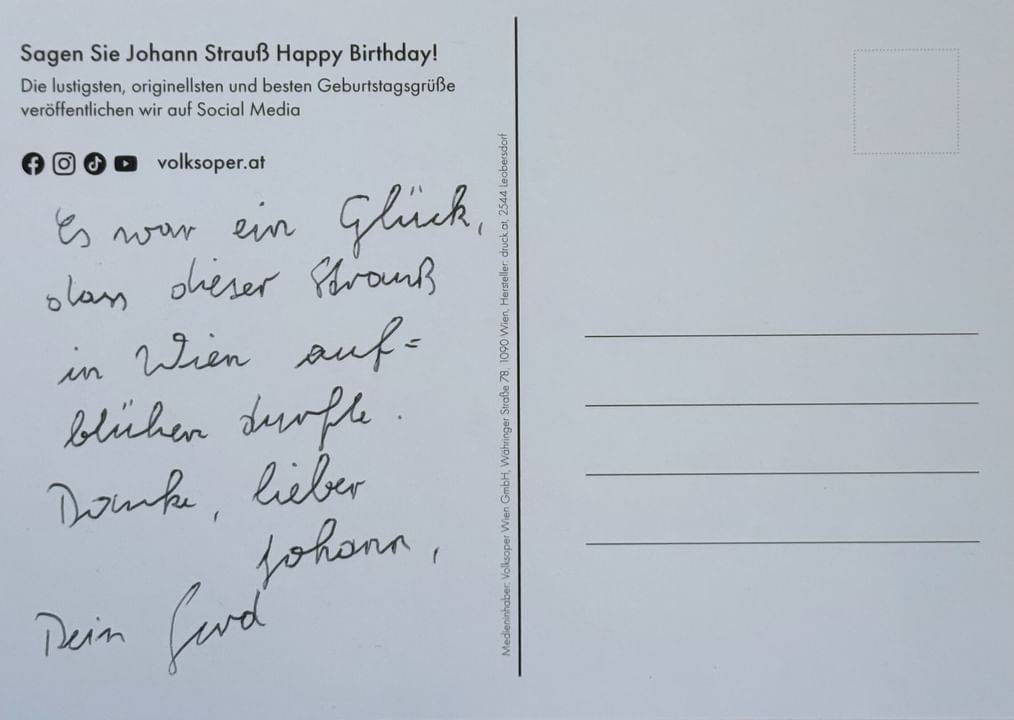 Sagen Sie Johann Strauß Happy Birthday!
Die lustigsten, originellsten und besten Geburtstagsgrüße
veröffentlichen wir auf Social Media
volksoper.at
Es war ein Glück,
dass dieser Strauß
in Wien auf=
blühen durfte.
Danke, lieber
Johann,
Dein Gerd
Medieninhaber: Volksoper Wien GmbH, Währinger Straße 78, 1090 Wien, Hersteller: druck.at, 2544 Leobersdorf